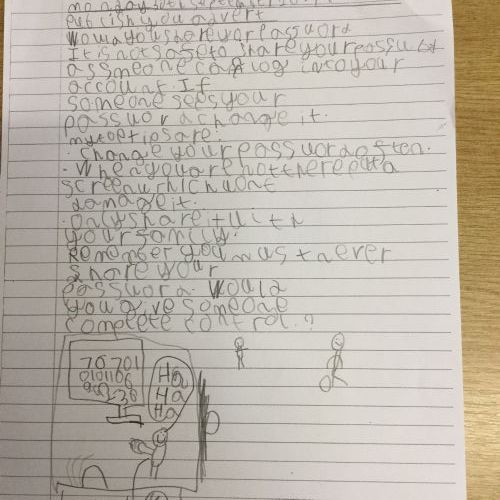 monday
publish you advert
would you share your password
It is not safe to share your
as someone can log into your
account. If
someone sees your
password change it.
my top tips are:
· change your password often.
· when you are not there put a
screen which wont
damage it.
· only share it with
your family.
Remember you must never
share your
password. would
you give someone
complete control?
Ha
Ha
Ha